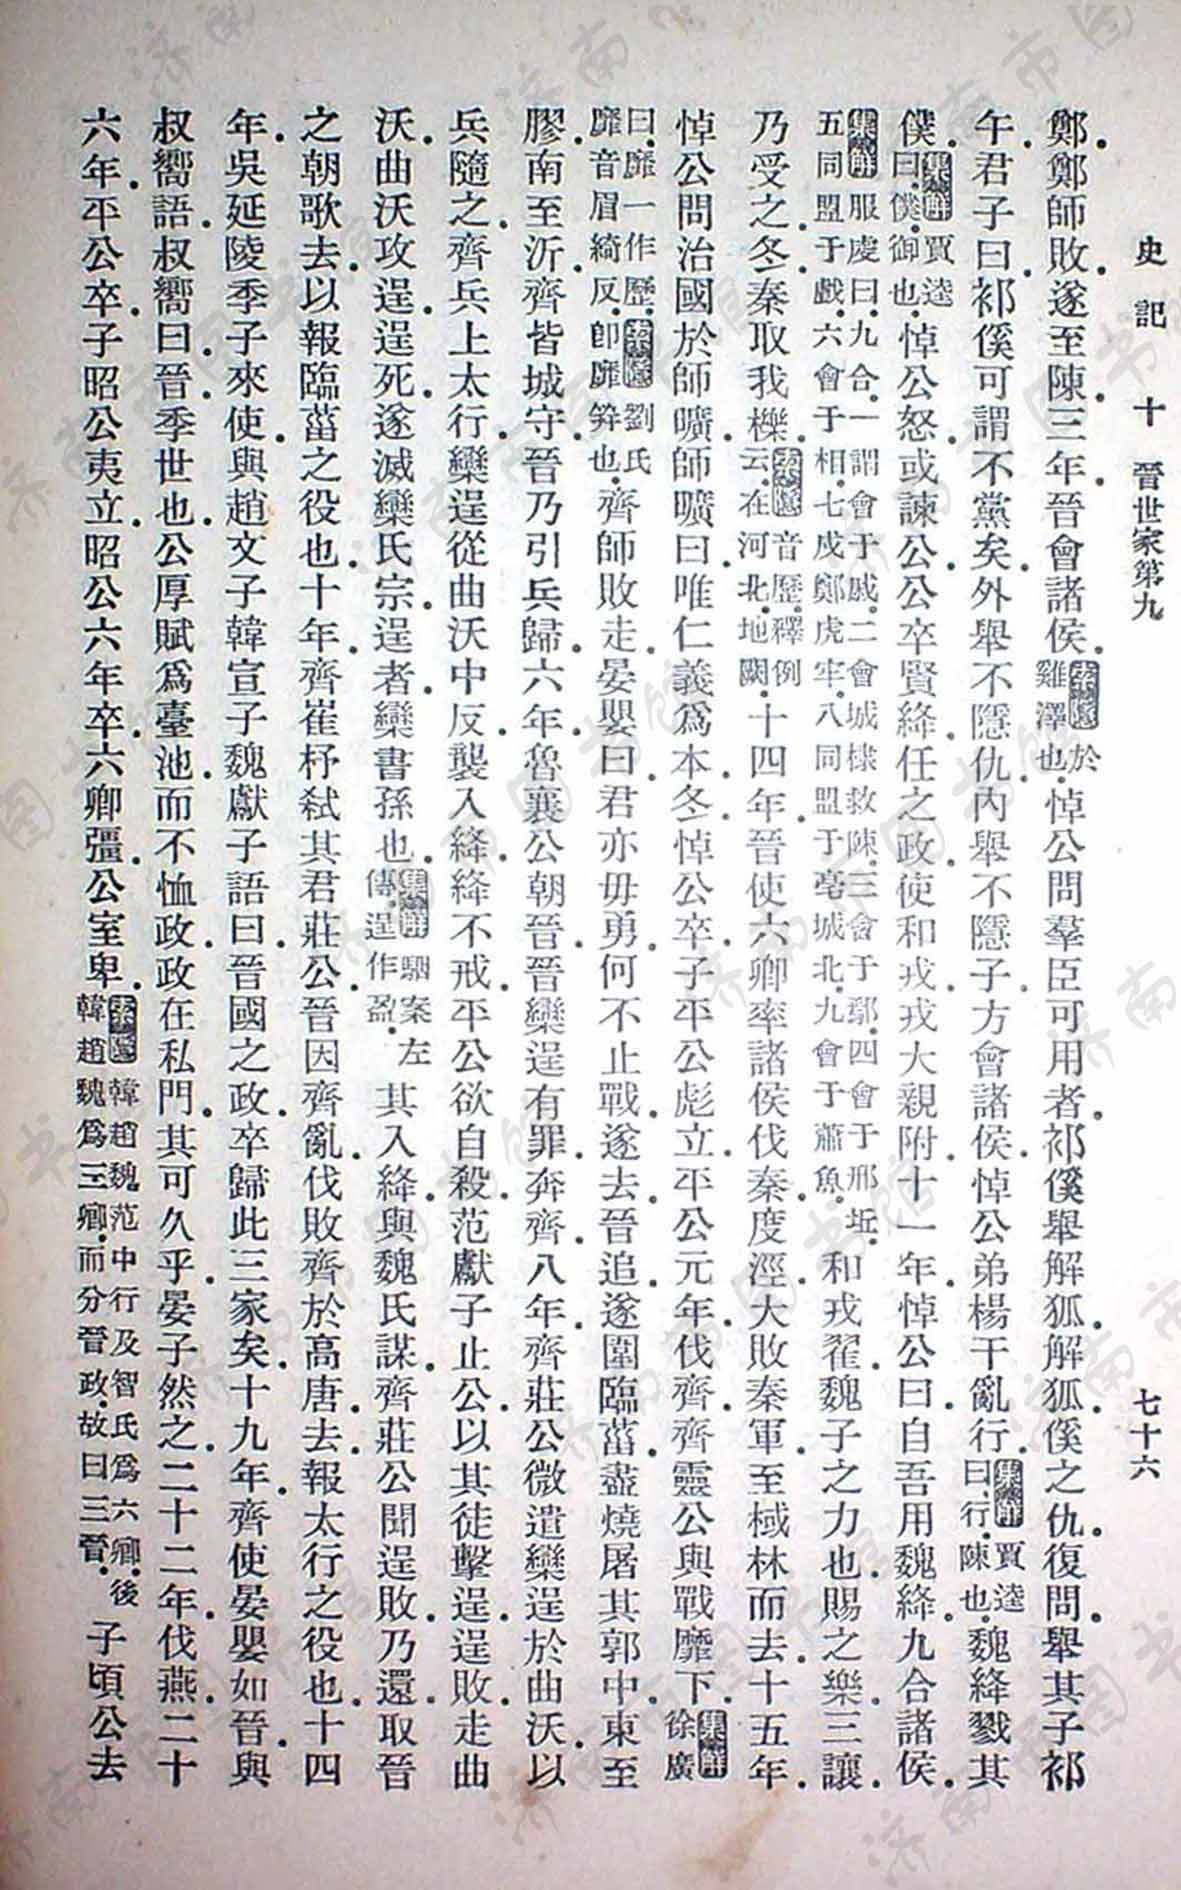 史記 十 晉世家第九 七十六
鄭鄭師敗遂至陳三年晉會諸侯索隱於雞澤也悼公問羣臣可用者祁傒舉解狐解狐傒之仇復問舉其子祁
午君子曰祁傒可謂不黨矣外舉不隱仇內舉不隱子方會諸侯悼公弟楊干亂行集解賈逵曰行陳也魏絳戮其
僕集解賈逵曰僕御也悼公怒或諫公公卒賢絳任之政使和戎戎大親附十一年悼公曰自吾用魏絳九合諸侯
集解服虔曰九合一謂會于戚二會城棣救陳三會于鄢四會于邢丘五同盟于戲六會于相七戍鄭虎牢八同盟于亳城北九會于蕭魚和戎翟魏子之力也賜之樂三讓
乃受之冬秦取我櫟索隱音歷釋例云在河北地闕十四年晉使六卿率諸侯伐秦度涇大敗秦軍至棫林而去十五年
悼公問治國於師曠師曠曰唯仁義爲本冬悼公卒子平公彪立平公元年伐齊齊靈公與戰靡下集解徐廣
曰靡一作歷索隱劉氏靡音眉綺反卽靡筓也齊師敗走晏嬰曰君亦毋勇何不止戰遂去晉追遂圍臨菑盡燒屠其郭中東至
膠南至沂齊皆城守晉乃引兵歸六年魯襄公朝晉晉欒逞有罪奔齊八年齊莊公微遣欒逞於曲沃以
兵隨之齊兵上太行欒逞從曲沃中反襲入絳絳不戒平公欲自殺范獻子止公以其徒擊逞逞敗走曲
沃曲沃攻逞逞死遂滅欒氏宗逞者欒書孫也集解駰案左傳逞作盈其入絳與魏氏謀齊莊公聞逞敗乃還取晉
之朝歌去以報臨菑之役也十年齊崔杼弒其君莊公晉因齊亂伐敗齊於高唐去報太行之役也十四
年吳延陵季子來使與趙文子韓宣子魏獻子語曰晉國之政卒歸此三家矣十九年齊使晏嬰如晉與
叔嚮語叔嚮曰晉季世也公厚賦爲臺池而不恤政政在私門其可久乎晏子然之二十二年伐燕二十
六年平公卒子昭公夷立昭公六年卒六卿彊公室卑索隱韓趙魏范中行及智氏爲六卿後韓趙魏爲三卿而分晉政故曰三晉子頃公去